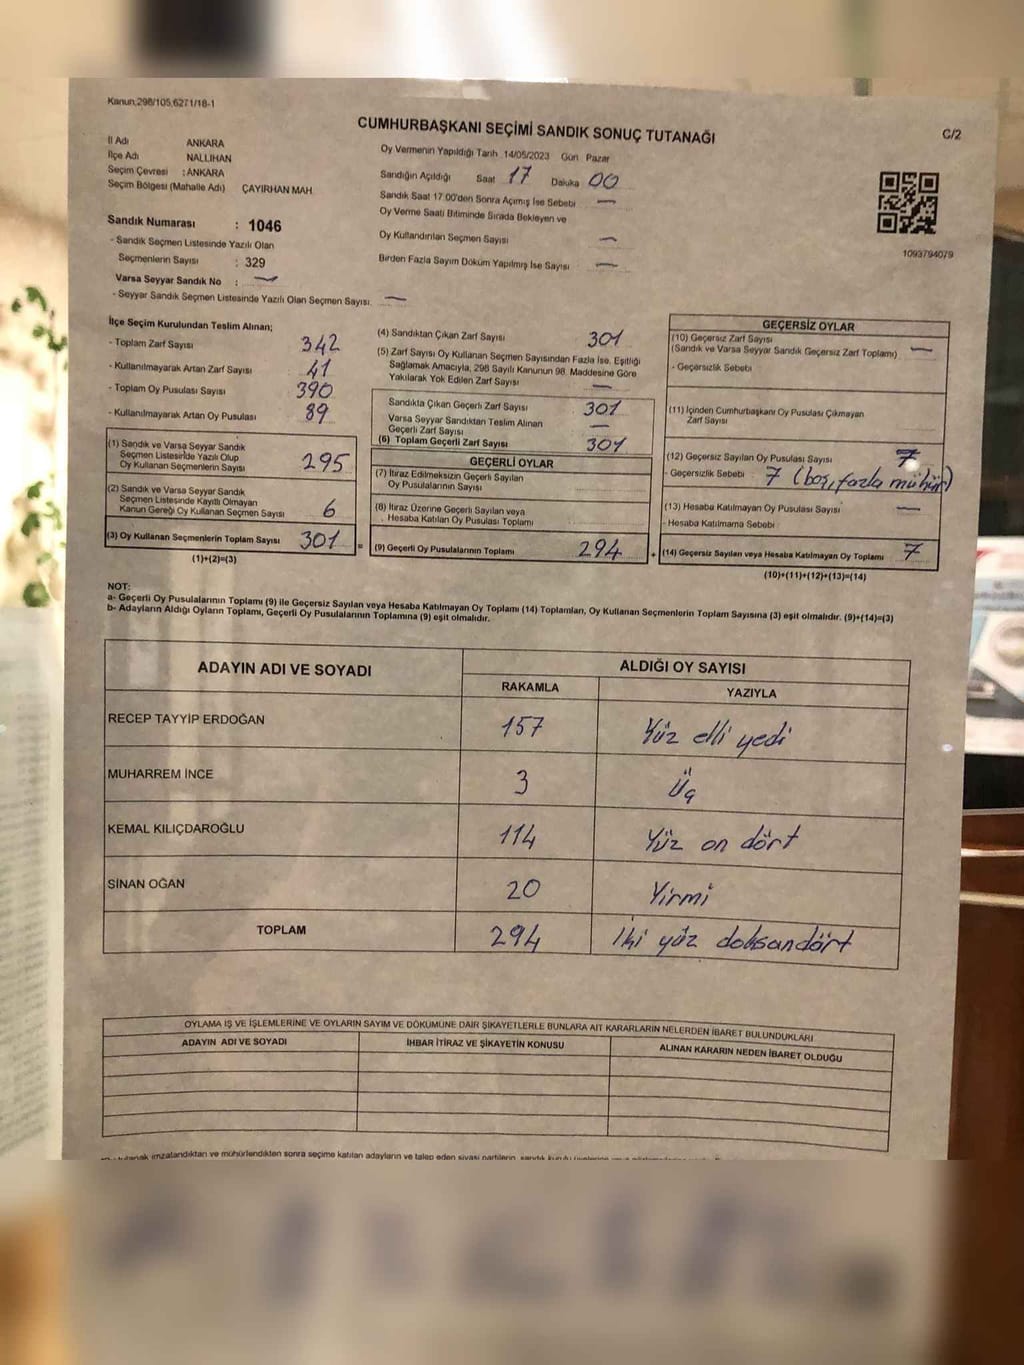 Kanun:298/105,6271/18-1
CUMHURBAŞKANI SEÇİMİ SANDIK SONUÇ TUTANAĞI
C/2
İl Adı ANKARA
İlçe Adı NALLIHAN
Seçim Çevresi : ANKARA
Seçim Bölgesi (Mahalle Adı) ÇAYIRHAN MAH.
Sandık Numarası : 1046
- Sandık Seçmen Listesinde Yazılı Olan
Seçmenlerin Sayısı : 329
Varsa Seyyar Sandık No : —
- Seyyar Sandık Seçmen Listesinde Yazılı Olan Seçmen Sayısı. —
Oy Vermenin Yapıldığı Tarih 14/05/2023 Gün Pazar
Sandığın Açıldığı Saat 17 Dakika 00
Sandık Saat 17:00'den Sonra Açımış İse Sebebi —
Oy Verme Saati Bitiminde Sırada Bekleyen ve
Oy Kullandırılan Seçmen Sayısı —
Birden Fazla Sayım Döküm Yapılmış İse Sayısı —
1093794079
İlçe Seçim Kurulundan Teslim Alınan;
- Toplam Zarf Sayısı 342
- Kullanılmayarak Artan Zarf Sayısı 41
- Toplam Oy Pusulası Sayısı 390
- Kullanılmayarak Artan Oy Pusulası 89
(1) Sandık ve Varsa Seyyar Sandık
Seçmen Listesinde Yazılı Olup
Oy Kullanan Seçmenlerin Sayısı 295
(2) Sandık ve Varsa Seyyar Sandık
Seçmen Listesinde Kayıtlı Olmayan
Kanun Gereği Oy Kullanan Seçmen Sayısı 6
(3) Oy Kullanan Seçmenlerin Toplam Sayısı 301 =
(1)+(2)=(3)
(4) Sandıktan Çıkan Zarf Sayısı 301
(5) Zarf Sayısı Oy Kullanan Seçmen Sayısından Fazla İse, Eşitliği
Sağlamak Amacıyla, 298 Sayılı Kanunun 98. Maddesine Göre
Yakılarak Yok Edilen Zarf Sayısı —
Sandıkta Çıkan Geçerli Zarf Sayısı 301
Varsa Seyyar Sandıktan Teslim Alınan
Geçerli Zarf Sayısı —
(6) Toplam Geçerli Zarf Sayısı 301
GEÇERLİ OYLAR
(7) İtiraz Edilmeksizin Geçerli Sayılan
Oy Pusulalarının Sayısı
(8) İtiraz Üzerine Geçerli Sayılan veya
Hesaba Katılan Oy Pusulası Toplamı
(9) Geçerli Oy Pusulalarının Toplamı 294 +
GEÇERSİZ OYLAR
(10) Geçersiz Zarf Sayısı
(Sandık ve Varsa Seyyar Sandık Geçersiz Zarf Toplamı) —
- Geçersizlik Sebebi
(11) İçinden Cumhurbaşkanı Oy Pusulası Çıkmayan
Zarf Sayısı
(12) Geçersiz Sayılan Oy Pusulası Sayısı 7
- Geçersizlik Sebebi : 7 (boş, fazla mühür)
(13) Hesaba Katılmayan Oy Pusulası Sayısı —
- Hesaba Katılmama Sebebi
(14) Geçersiz Sayılan veya Hesaba Katılmayan Oy Toplamı 7
(10)+(11)+(12)+(13)=(14)
NOT:
a- Geçerli Oy Pusulalarının Toplamı (9) ile Geçersiz Sayılan veya Hesaba Katılmayan Oy Toplamı (14) Toplamları, Oy Kullanan Seçmenlerin Toplam Sayısına (3) eşit olmalıdır. (9)+(14)=(3)
b- Adayların Aldığı Oyların Toplamı, Geçerli Oy Pusulalarının Toplamına (9) eşit olmalıdır.
ADAYIN ADI VE SOYADI ALDIĞI OY SAYISI
RAKAMLA YAZIYLA
RECEP TAYYİP ERDOĞAN 157 Yüz elli yedi
MUHARREM İNCE 3 Üç
KEMAL KILIÇDAROĞLU 114 Yüz on dört
SİNAN OĞAN 20 Yirmi
TOPLAM 294 İki yüz doksandört
OYLAMA İŞ VE İŞLEMLERİNE VE OYLARIN SAYIM VE DÖKÜMÜNE DAİR ŞİKAYETLERLE BUNLARA AİT KARARLARIN NELERDEN İBARET BULUNDUKLARI
ADAYIN ADI VE SOYADI İHBAR İTİRAZ VE ŞİKAYETİN KONUSU ALINAN KARARIN NEDEN İBARET OLDUĞU
tutanak imzalandıktan ve mühürlendikten sonra seçime katılan adayların ve talep eden siyasi partilerin, sandık kurulu